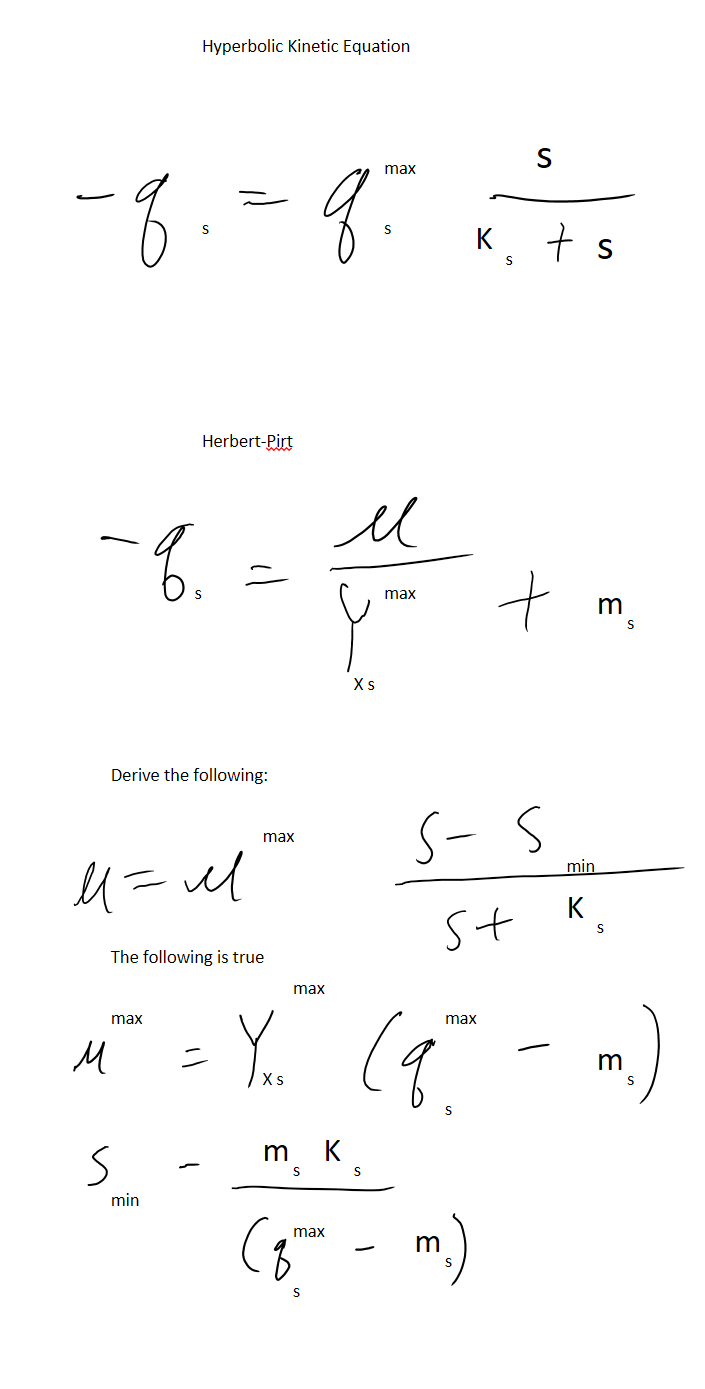 Hyperbolic Kinetic Equation
- q s = q s max s / K s + s
Herbert-Pirt
- q s = μ / Y X s max + m s
Derive the following:
μ = μ max s - s min / s + K s
The following is true
μ max = Y X s max ( q s max - m s )
s min - m s K s / ( q s max - m s )